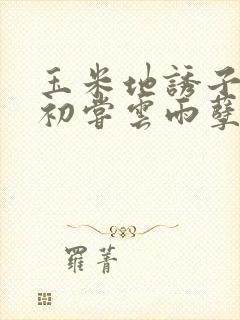 玉米地誘子
初嘗雲雨孽
羅菁